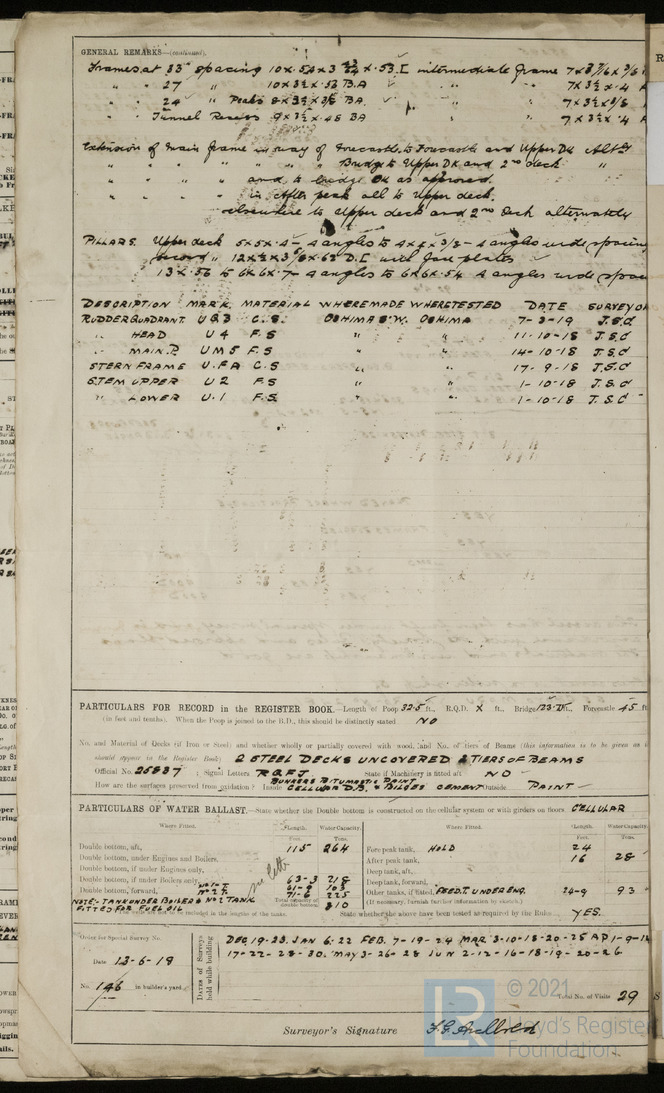 GENERAL REMARKS—(continued).
Frames at 33" spacing 10 x 3 [ intermediate frame 7 x 3
" " 27 " 10 x 3½ x .52 B.A 7 x 3½ x .4
" " 24 " Peaks 8 x 3½ x 3/8 B.A. 7 x 3½ x 3/8
" " Tunnel Recess 9 x 3½ x .48 BA 7 x 3½ x .4
Extension of Main Frame in way of Forecastle to Forecastle and Upper Dk Altly
" " " " " " Bridge to Upper Dk and 2nd deck "
" " " " and to bridge Dk as approved
" " " " in After peak all to Upper deck.
elsewhere to Upper deck and 2nd Deck alternately
PILLARS. Upper deck 5 x 5 x .4 - 4 angles to 4 x 4 x 3/8 - 4 angles wide spacing
Second " 12 x 3½ x D.[ with face plates
13 x .56 to 6 x 6 x .7 - 4 angles to 6 x 6 x .54 4 angles wide
DESCRIPTION MARK. MATERIAL WHERE MADE WHERE TESTED DATE SURVEYOR
RUDDER QUADRANT U Q 3 C.S. OSHIMA S.W. OSHIMA 7-3-19 J.S.C
" HEAD U 4 F.S " " 11-10-18 J.S.C
" MAIN P. U M 5 F.S " " 14-10-18 J.S.C
STERN FRAME U.F A C.S " " 17-9-18 J.S.C
STEM UPPER U 2 F.S " " 1-10-18 J.S.C
" LOWER U.1 F.S " " 1-10-18 J.S.C
PARTICULARS FOR RECORD in the REGISTER BOOK.—Length of Poop 32.5 ft., R.Q.D. X ft., Bridge 123 ft., Forecastle 45 ft
(in feet and tenths). When the Poop is joined to the B.D., this should be distinctly stated NO
No. and Material of Decks (if Iron or Steel) and whether wholly or partially covered with wood, and No. of tiers of Beams (this information is to be given as it
should appear in the Register Book) 2 STEEL DECKS UNCOVERED 2 TIERS OF BEAMS
Official No. 25837 ; Signal Letters R Q F J State if Machinery is fitted aft NO
BUNKERS BITUMASTIC PAINT
How are the surfaces preserved from oxidation? Inside CELLULAR D.B. & BILGES CEMENT Outside PAINT
PARTICULARS OF WATER BALLAST.—State whether the Double bottom is constructed on the cellular system or with girders on floors CELLULAR
Where Fitted. Length. Water Capacity. Where Fitted. Length. Water Capacity.
Feet. Tons. Feet. Tons.
Double bottom, aft, 115 264 Fore peak tank, HOLD 24
Double bottom, under Engines and Boilers, After peak tank, 16 28
Double bottom, if under Engines only, Deep tank, aft,
Double bottom, if under Boilers only, 63-3 218 Deep tank, forward,
Double bottom, forward, No 1 T 61-9 103 Other tanks, if fitted, FEED T. UNDER ENG. 24-9 93
No 2 T 71-6 225 (If necessary, furnish further information by sketch.)
NOTE:- TANK UNDER BOILERS & No 2 TANK Total capacity of double bottom 810
FITTED FOR FUEL OIL State whether the above have been tested as required by the Rules YES.
Order for Special Survey No. DATES of Surveys held while building DEC. 19-23. JAN 6-22 FEB. 7-19-24 MAR 3-10-18-20-25 AP 1-9-14
Date 13-6-19 17-22-28-30. MAY 3-26-28 JUN 2-12-16-18-19-20-26
No. 146 in builder's yard. Total No. of Visits 29
Surveyor's Signature
© 2021
Lloyd's Register
Foundation
LR